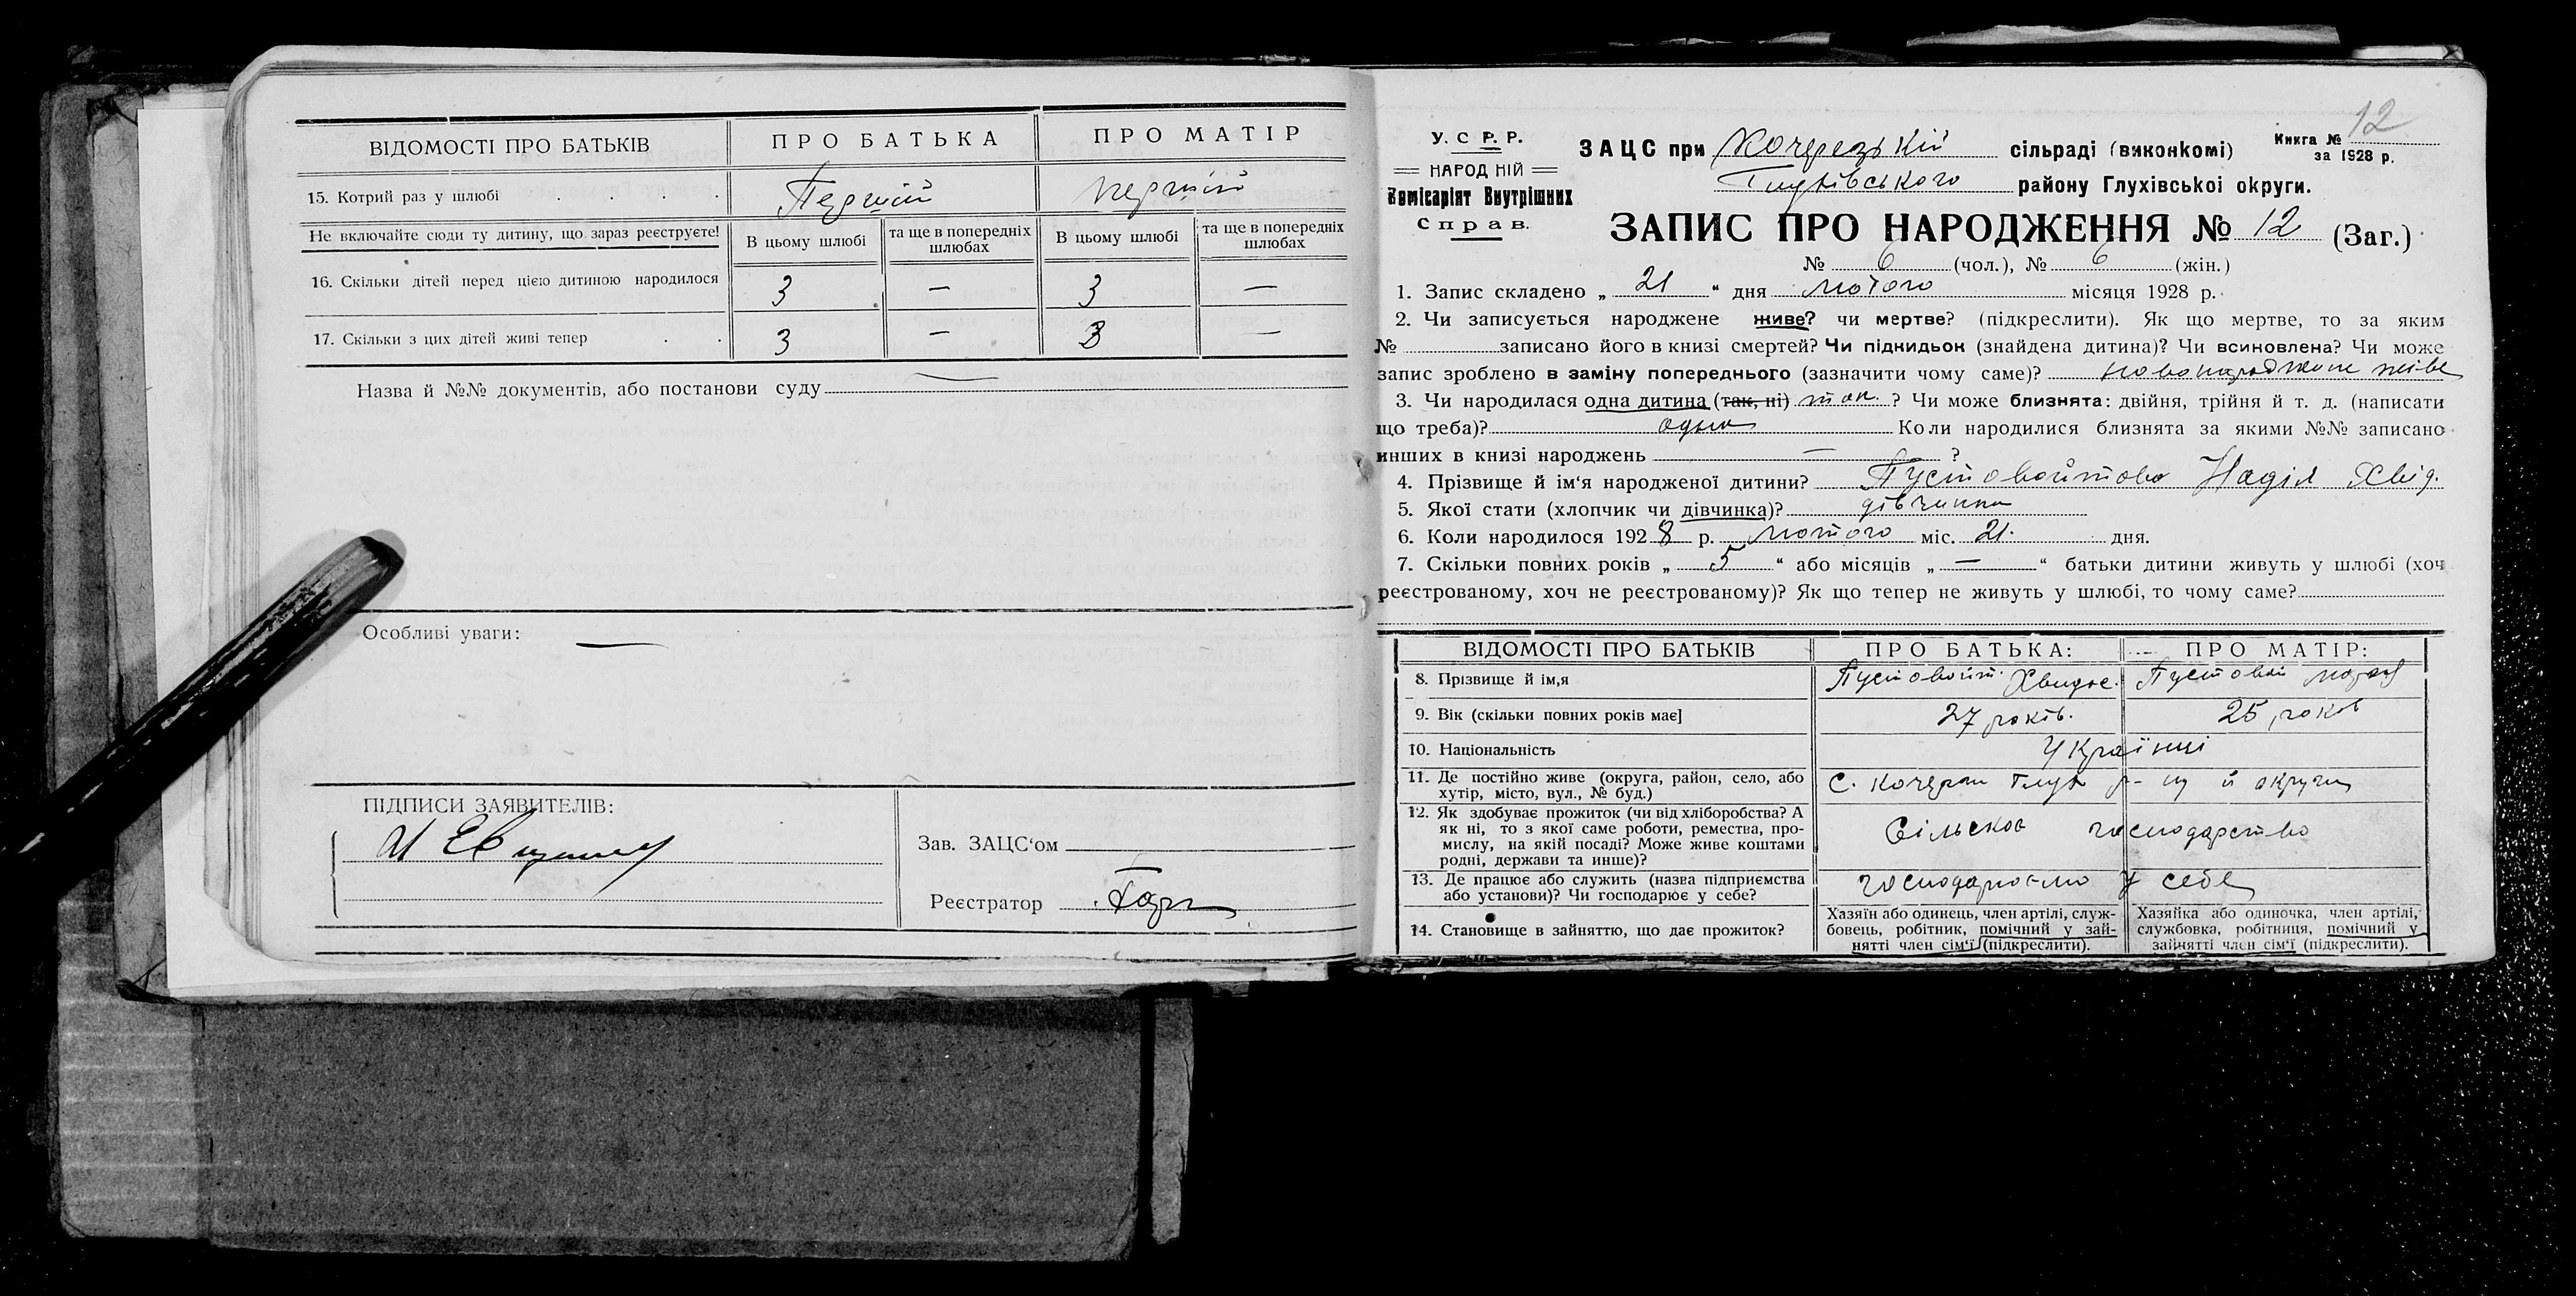 ВІДОМОСТІ ПРО БАТЬКІВ ПРО БАТЬКА ПРО МАТІР
15. Котрий раз у шлюбі Першій першій
Не включайте сюди ту дитину, що зараз реєструєте! В цьому шлюбі та ще в попередніх шлюбах В цьому шлюбі та ще в попередніх шлюбах
16. Скільки дітей перед цією дитиною народилося 3 — 3 —
17. Скільки з цих дітей живі тепер 3 — 3 —
Назва й №№ документів, або постанови суду —
Особливі уваги: —
ПІДПИСИ ЗАЯВИТЕЛІВ:
Зав. ЗАЦС'ом
Реєстратор
У. С. Р. Р.
НАРОДНІЙ
Комісаріят Внутрішних
Справ.
ЗАЦС при Кочерезькій сільраді (виконкомі)
Книга № 12
за 1928 р.
Глухівського району Глухівської округи.
ЗАПИС ПРО НАРОДЖЕННЯ № 12 (Заг.)
№ 6 (чол.), № 6 (жін.)
1. Запис складено „ 21 “ дня лютого місяця 1928 р.
2. Чи записується народжене живе? чи мертве? (підкреслити). Як що мертве, то за яким
№ записано його в книзі смертей? Чи підкидьок (знайдена дитина)? Чи всиновлена? Чи може
запис зроблено в заміну попереднього (зазначити чому саме)? новонароджене живе
3. Чи народилася одна дитина (так, ні) так ? Чи може близнята: двійня, трійня й т. д. (написати
що треба)? одна Коли народилися близнята за якими №№ записано
инших в книзі народжень — ?
4. Прізвище й ім'я народженої дитини? Пустовойтова Надія Хвід.
5. Якої стати (хлопчик чи дівчинка)? дівчинка
6. Коли народилося 1928 р. лютого міс. 21. дня.
7. Скільки повних років „ 5 “ або місяців „ — “ батьки дитини живуть у шлюбі (хоч
реєстрованому, хоч не реєстрованому)? Як що тепер не живуть у шлюбі, то чому саме?
ВІДОМОСТІ ПРО БАТЬКІВ ПРО БАТЬКА: ПРО МАТІР:
8. Прізвище й ім,я Пустовойт. Пустовой
9. Вік (скільки повних років має] 27 років. 25 років
10. Національність Українці
11. Де постійно живе (округа, район, село, або
хутір, місто, вул., № буд.) С. Кочерги Глух р-ну й округи
12. Як здобуває прожиток (чи від хліборобства? А
як ні, то з якої саме роботи, ремества, про-
мислу, на якій посаді? Може живе коштами
родні, держави та инше)? Сільское господарство
13. Де працює або служить (назва підприємства
або установи)? Чи господарює у себе? господарює у себе
14. Становище в зайняттю, що дає прожиток?
Хазяїн або одинець, член артілі, служ-
бовець, робітник, помічний у зай-
нятті член сім'ї (підкреслити).
Хазяйка або одиночка, член артілі,
службовка, робітниця, помічний у
зайнятті член сім'ї (підкреслити).